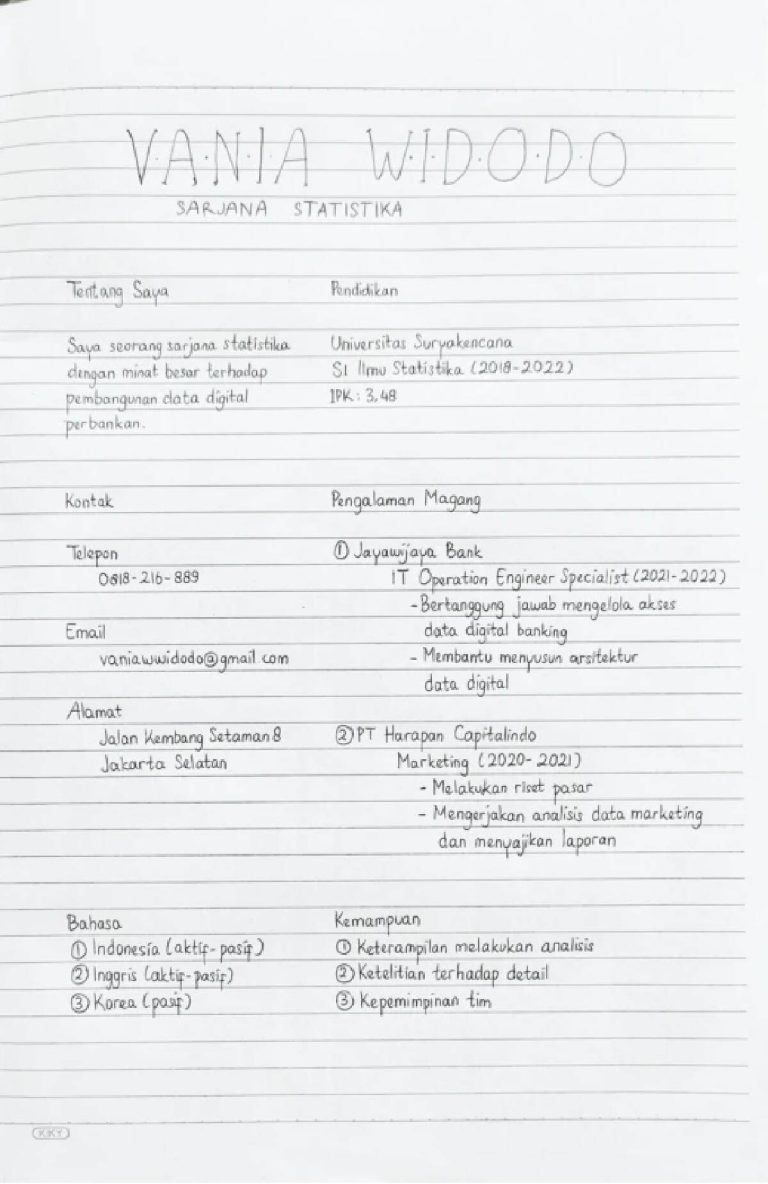 VANIA WIDODO
SARJANA STATISTIKA
Tentang Saya
Saya seorang sarjana statistika
dengan minat besar terhadap
pembangunan data digital
perbankan.
Pendidikan
Universitas Suryakencana
S1 Ilmu Statistika (2018-2022)
IPK: 3,48
Kontak
Telepon
0818-216-889
Email
vaniawwidodo@gmail.com
Alamat
Jalan Kembang Setaman 8
Jakarta Selatan
Pengalaman Magang
① Jayawijaya Bank
IT Operation Engineer Specialist (2021-2022)
-Bertanggung jawab mengelola akses
data digital banking
- Membantu menyusun arsitektur
data digital
② PT Harapan Capitalindo
Marketing (2020-2021)
- Melakukan riset pasar
- Mengerjakan analisis data marketing
dan menyajikan laporan
Bahasa
① Indonesia (aktif-pasif)
② Inggris (aktif-pasif)
③ Korea (pasif)
Kemampuan
① Keterampilan melakukan analisis
② Ketelitian terhadap detail
③ Kepemimpinan tim
KIKY